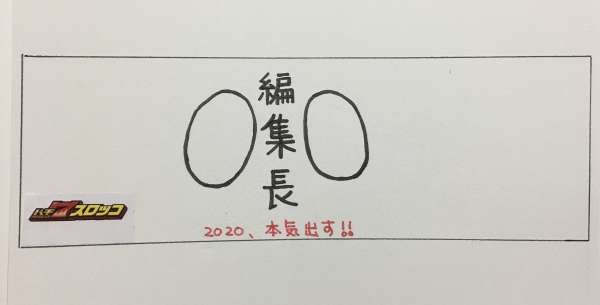 編集長
パチ7スロッコ
2020、本気出す!!